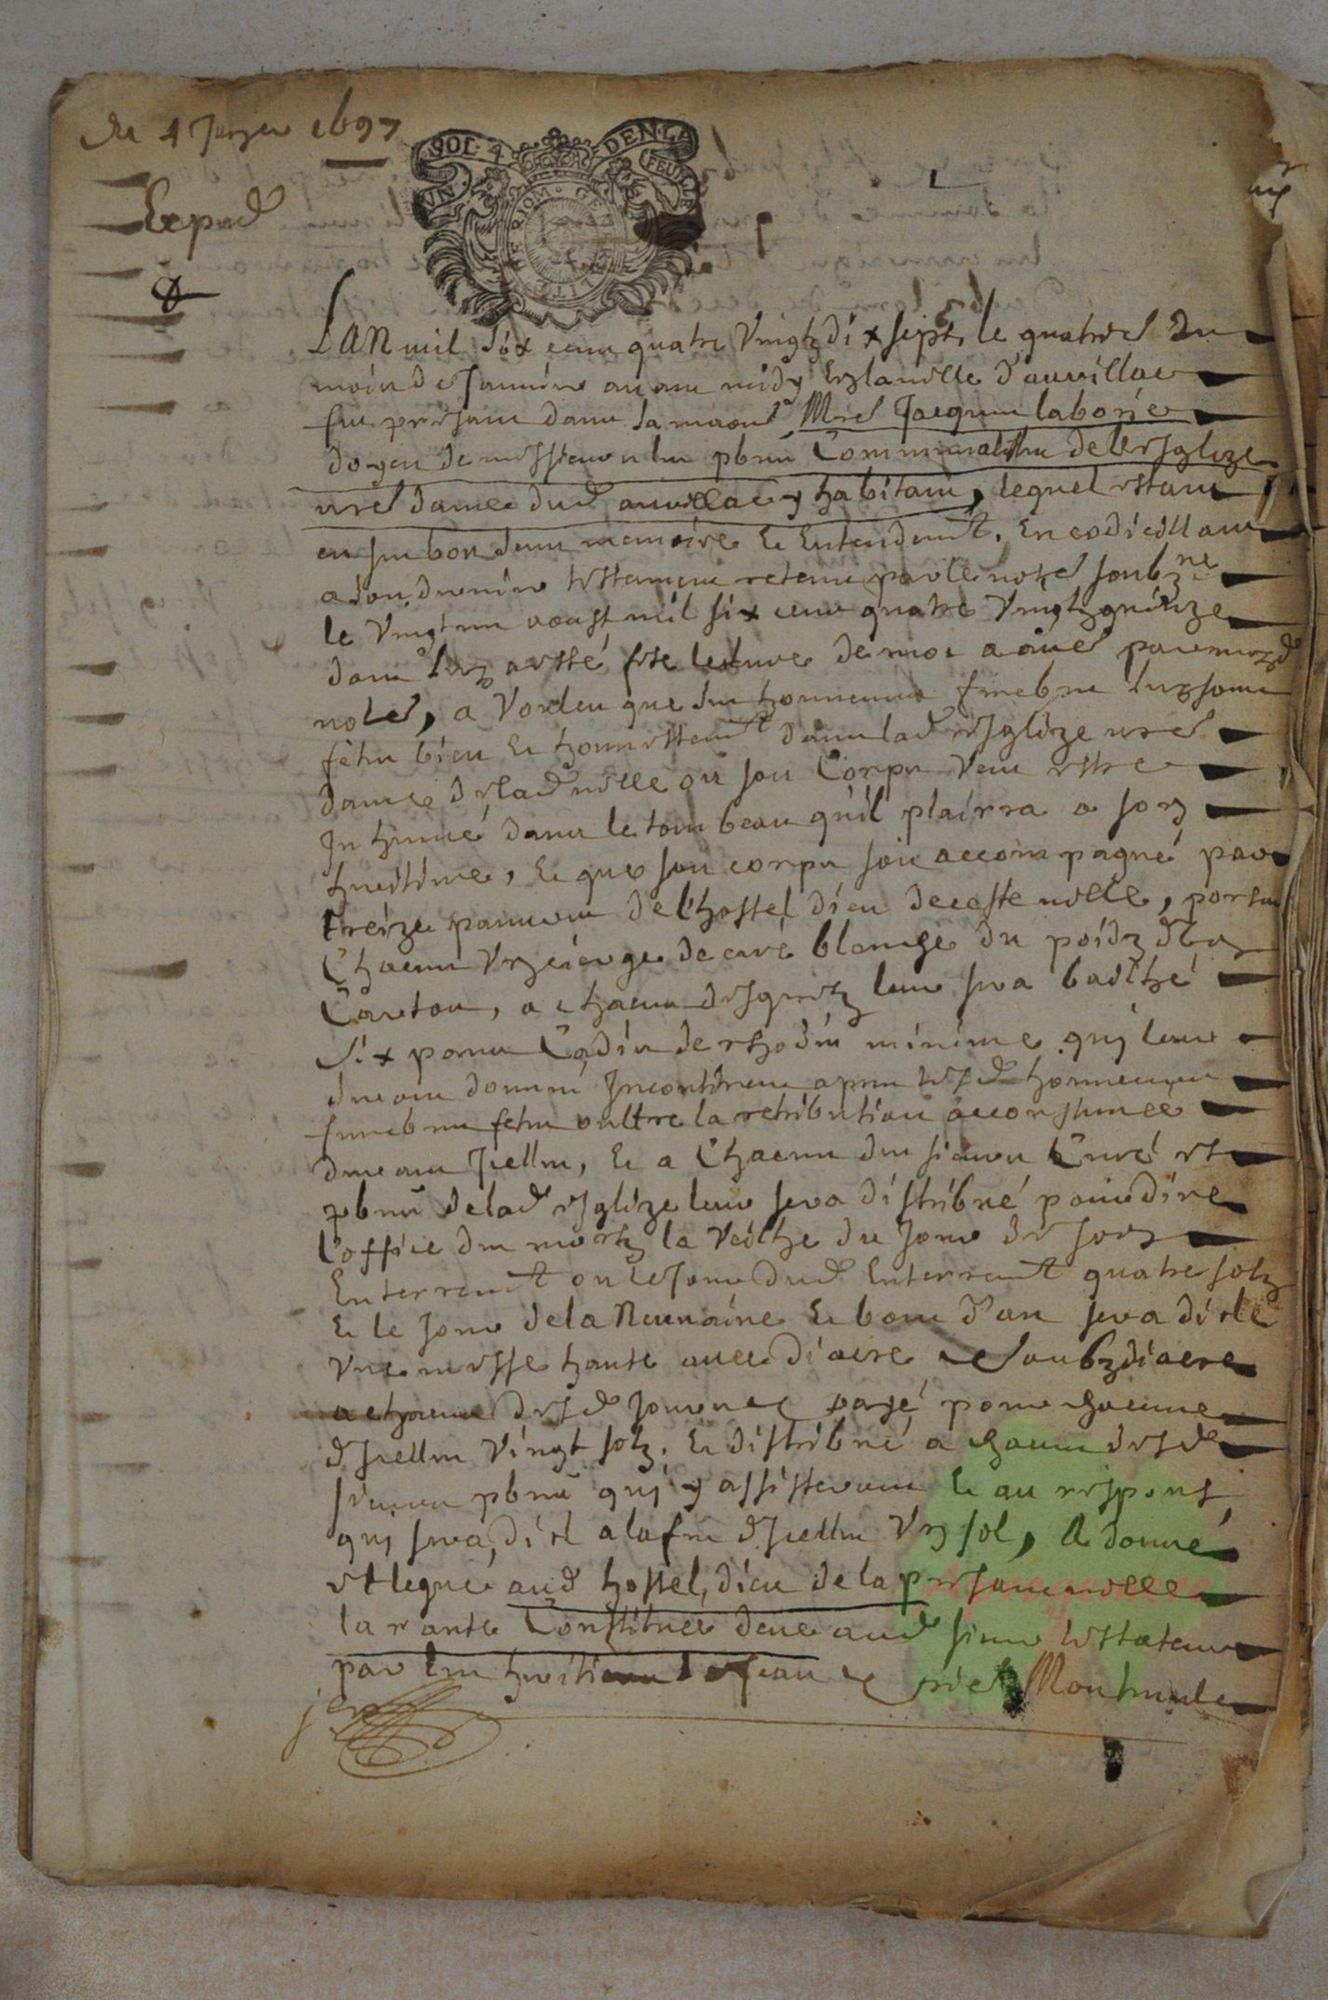 du 4 Janvier 1697
VN. SOL. 4 DEN. LA FEUILLE
Expéd
LAN mil six cens quatre vingtz dix sept, le quatrie du
mois de Janvier avant midy en la ville d'auvillar
fut presant dans sa maison Mre Jacques laborie
doyen de messieurs les pbres Communalistes de l'esglize
nre dame dud auvillar y habitant, lequel estant
en ses bon sens memoire et Entendemt. En codicillant
a son dernier testament retenu par le notre soubzne
le vingt un aoust mil six cens quatre vingtz quinze
dont luy a esté fte lecture de mot a mot par moyd
notre, a vouleu que ses honneurs funebres luy soint
fetes bien et honnestemt dans lad esglize nre
dame de lad ville ou son Corps veut estre
Inhumé dans le tombeau qu'il plairra a son
heritiere, et que son corps soit accompagné par
treize pauvres de l'hostel dieu de ceste ville, portans
Chacun un cierge de cire blanche du poidz d'un
Carton, a chacun desquelz leur sera bailhé
six pams Cadis de rhodes minime quy leur
seront donnés Incontinent apres lesd honneurs
funebres fetes oultre la retribution accoustumée
Icelles, et a Chacun des sieurs Curé et
pbres de lad esglize leur sera distribué pour dire
l'office des mortz la veilhe du jour de son
Enterremt ou le jour dud Enterremt quatre solz
et le jour de la Neuvaine et bout d'an sera dite
une messe haute avec diacre et soubzdiacre
a chacun desd jours payé pour chacune
d'Icelles vingt solz, et distribué a chacun desd
sieurs pbres quy y assisteront et au respons
quy sera dit a la fin d'Icelles un sol, a donné
et legué aud hostel dieu de la presant ville
la rante Constituée deue aud sieur testateur
par les heritiers de Jean